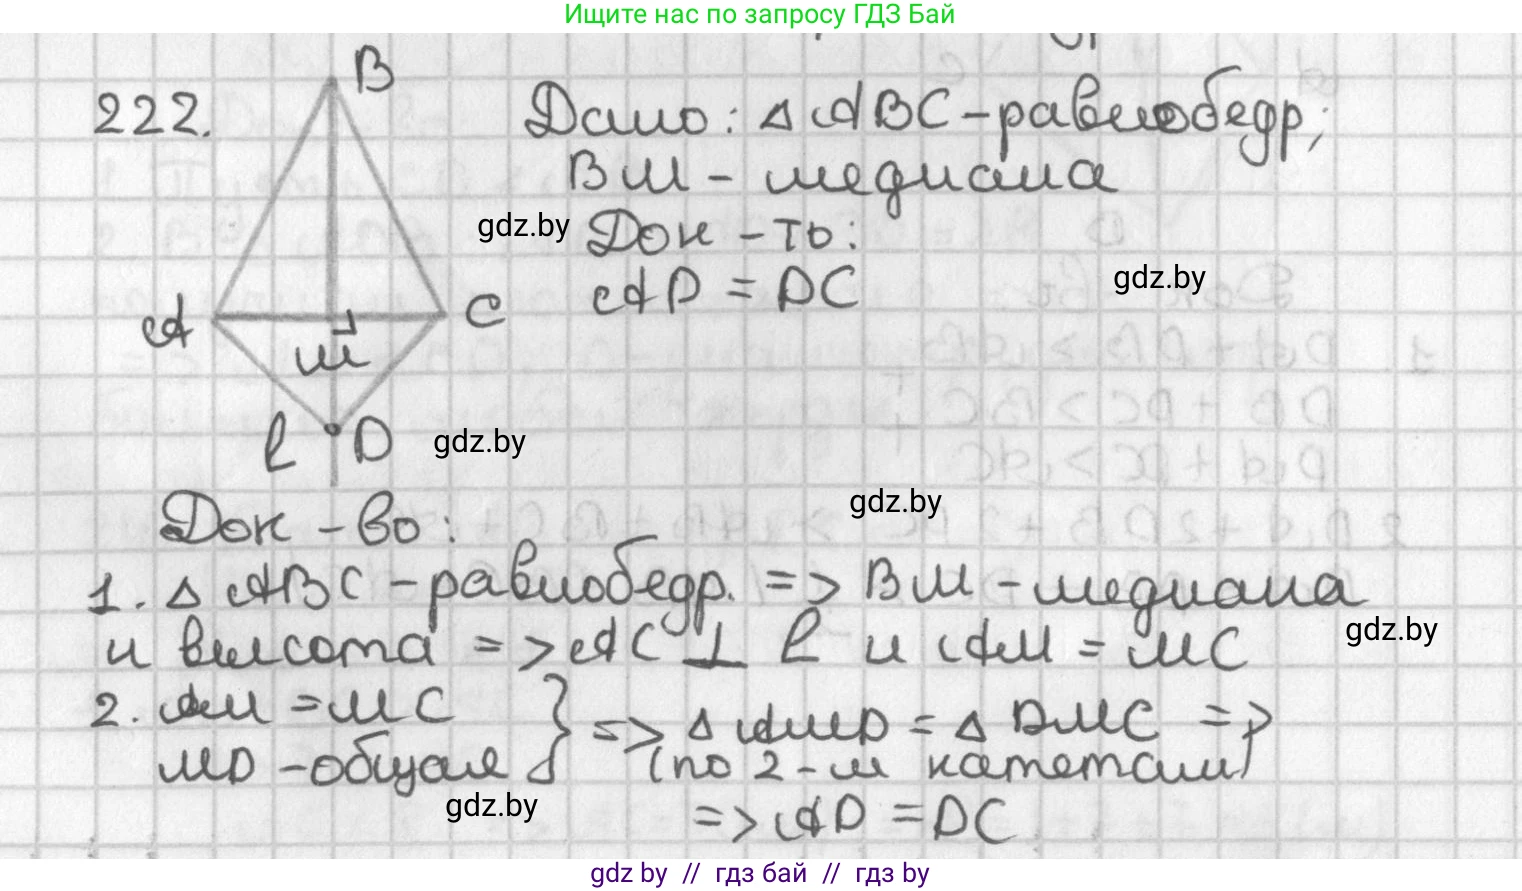 Ищите нас по запросу ГДЗ Бай
222.
B
Дано: △ ABC - равнобедр;
BM - медиана
gdz.by
Док - ть:
gdz.by
AD = DC
A
C
M
l
D
gdz.by
gdz.by
Док - во:
1. △ ABC - равнобедр. => BM - медиана
gdz.by
и высота => AC ⊥ l и AM = MC
2. AM = MC
MD - общая } => △ AMD = △ DMC =>
(по 2-м катетам)
gdz.by
=> AD = DC
gdz by // гдз бай // гдз by